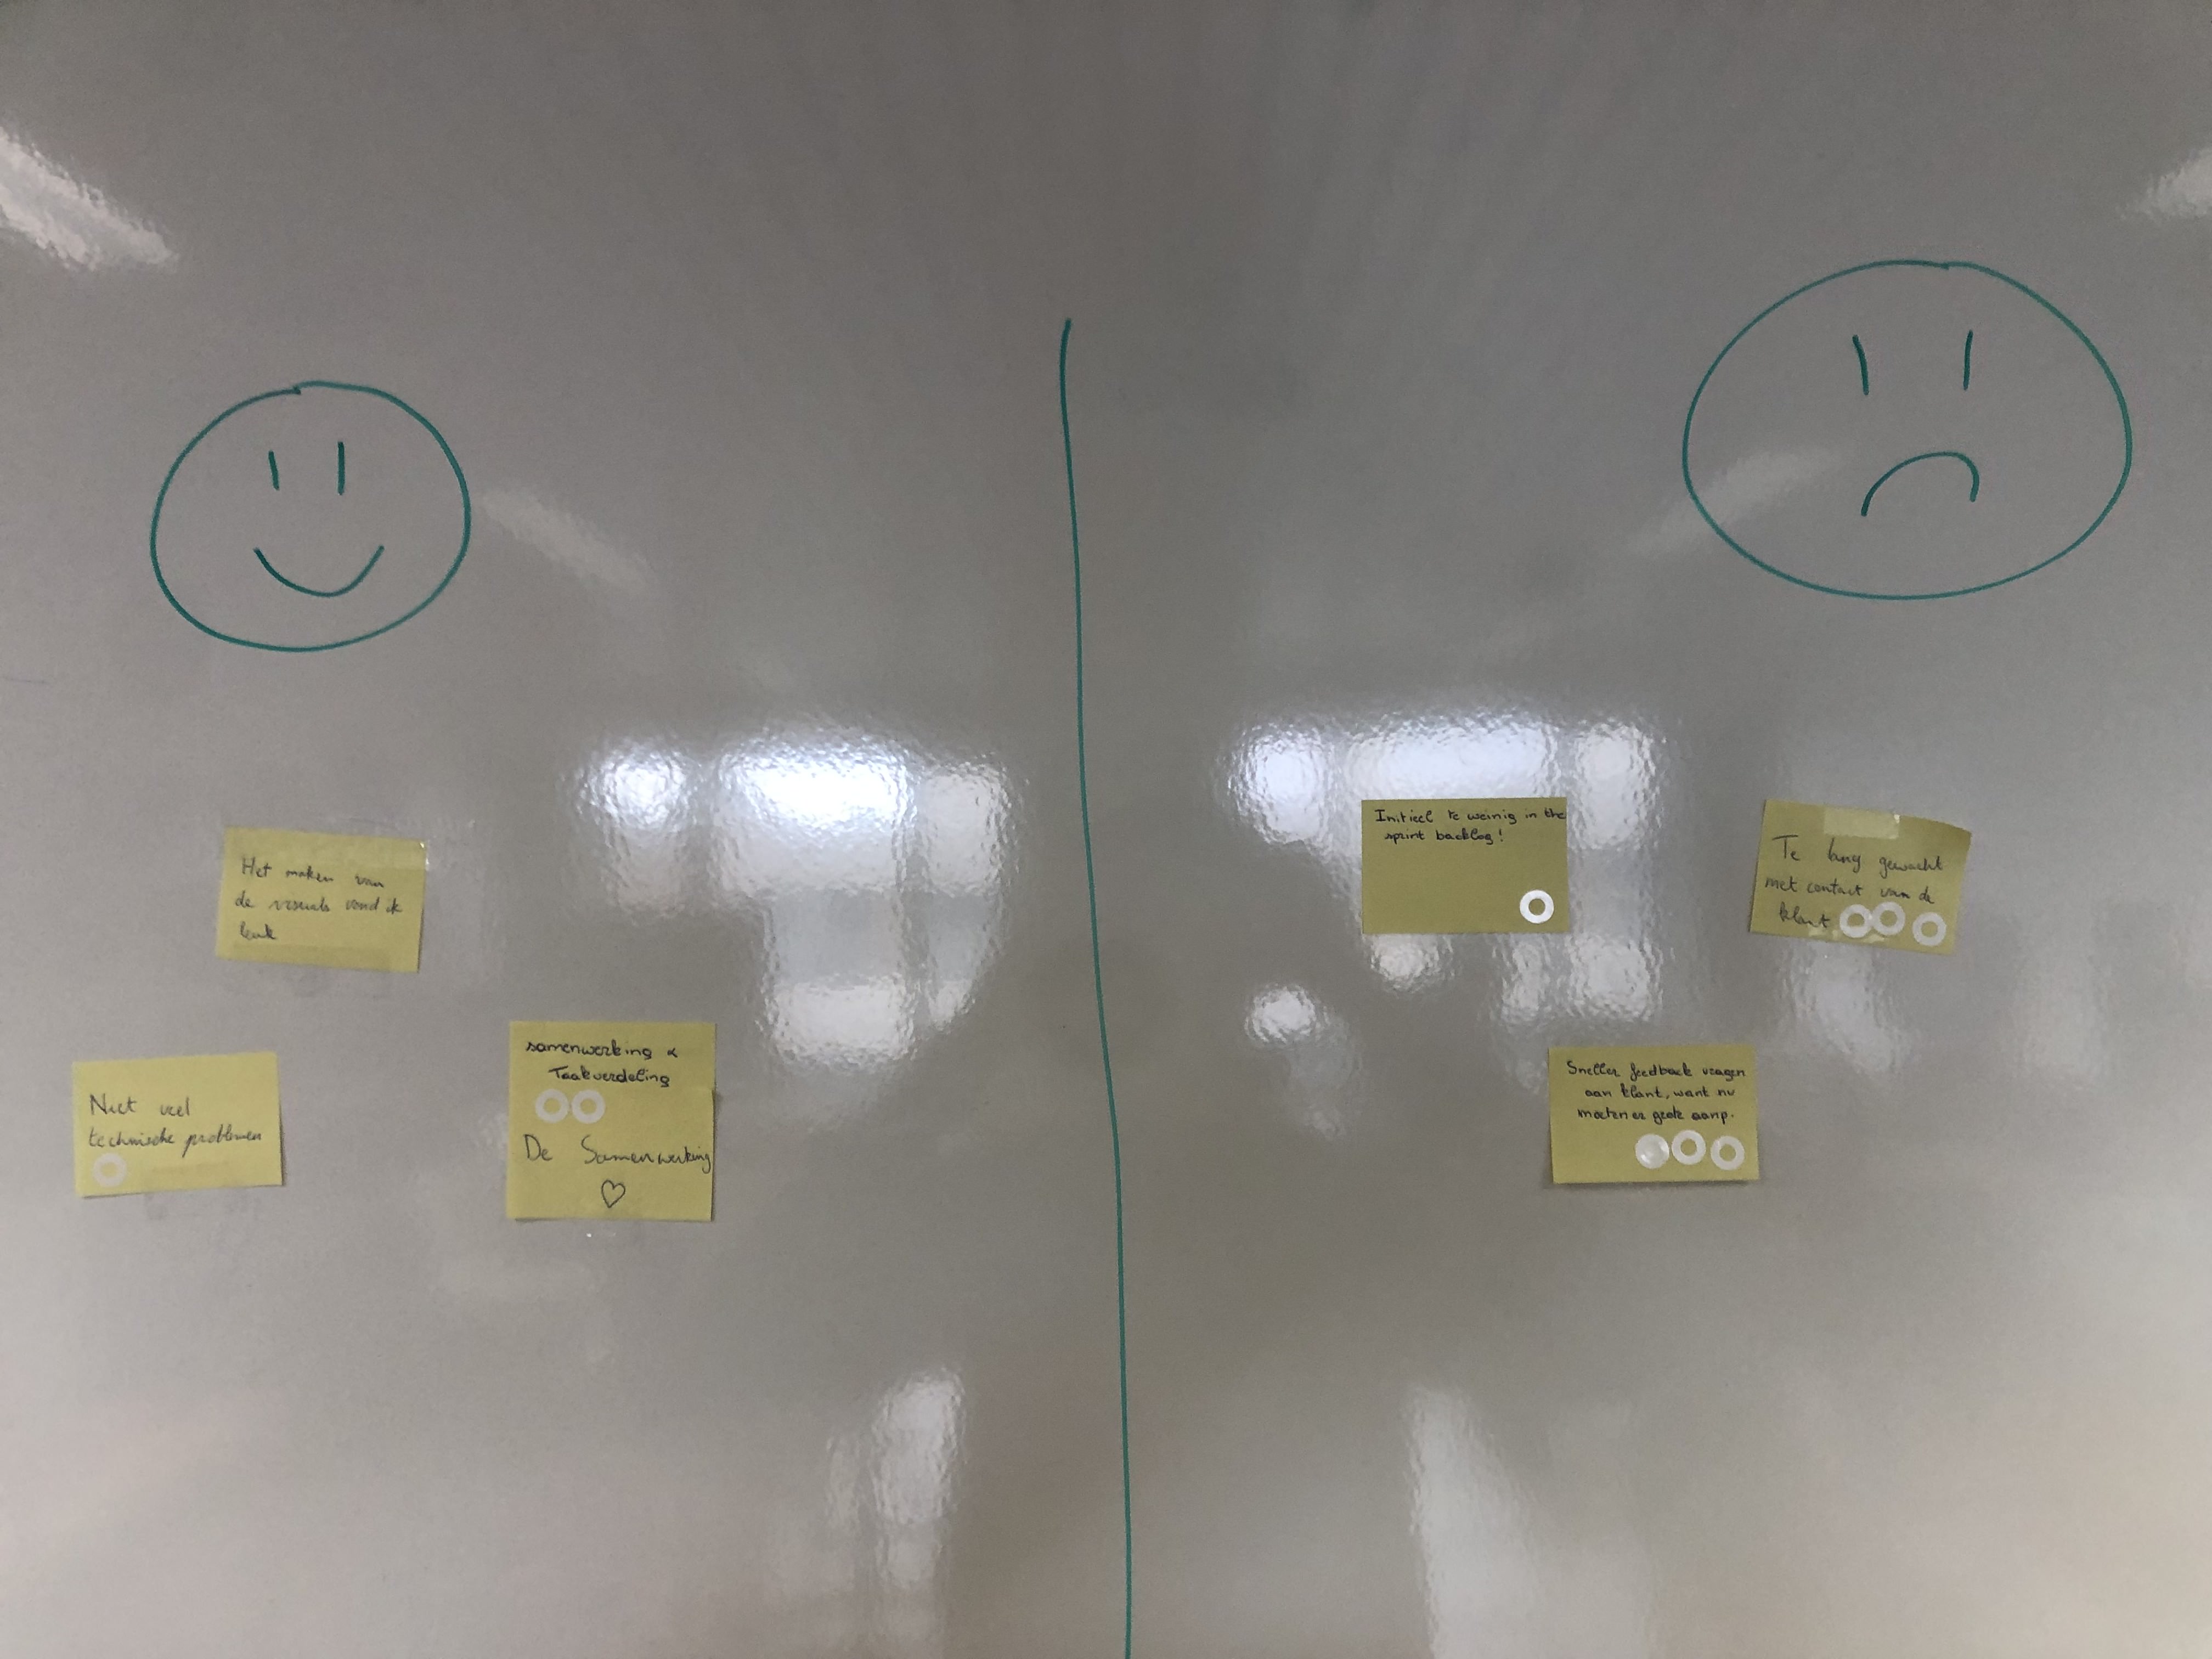 Het maken van
de visuals vond ik
leuk
Niet veel
technische problemen
samenwerking &
Taakverdeling
De Samenwerking
Initieel te weinig in the
sprint backlog!
Te lang gewacht
met contact van de
klant
Sneller feedback vragen
aan klant, want nu
moeten er grote aanp.